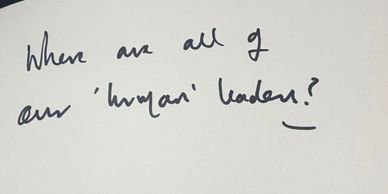 Where are all of
our 'human' leaders?